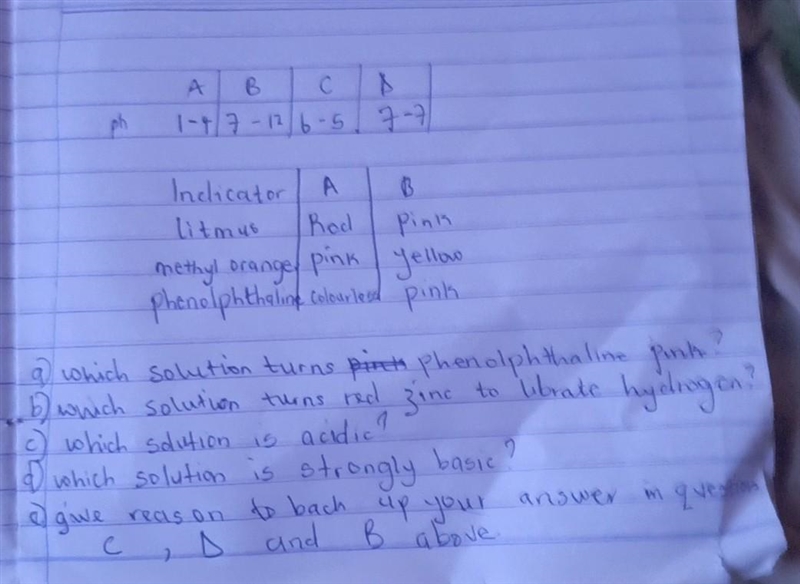 A B C D
ph 1-4 7-12 6-5 7-7
Indicator A B
litmus Red pink
methyl orange pink yellow
phenolphthaline colourless pink
a) which solution turns pink phenolphthaline pink?
b) which solution turns red zinc to librate hydrogen?
c) which solution is acidic?
d) which solution is strongly basic?
e) give reason to back up your answer in question
C, D and B above.